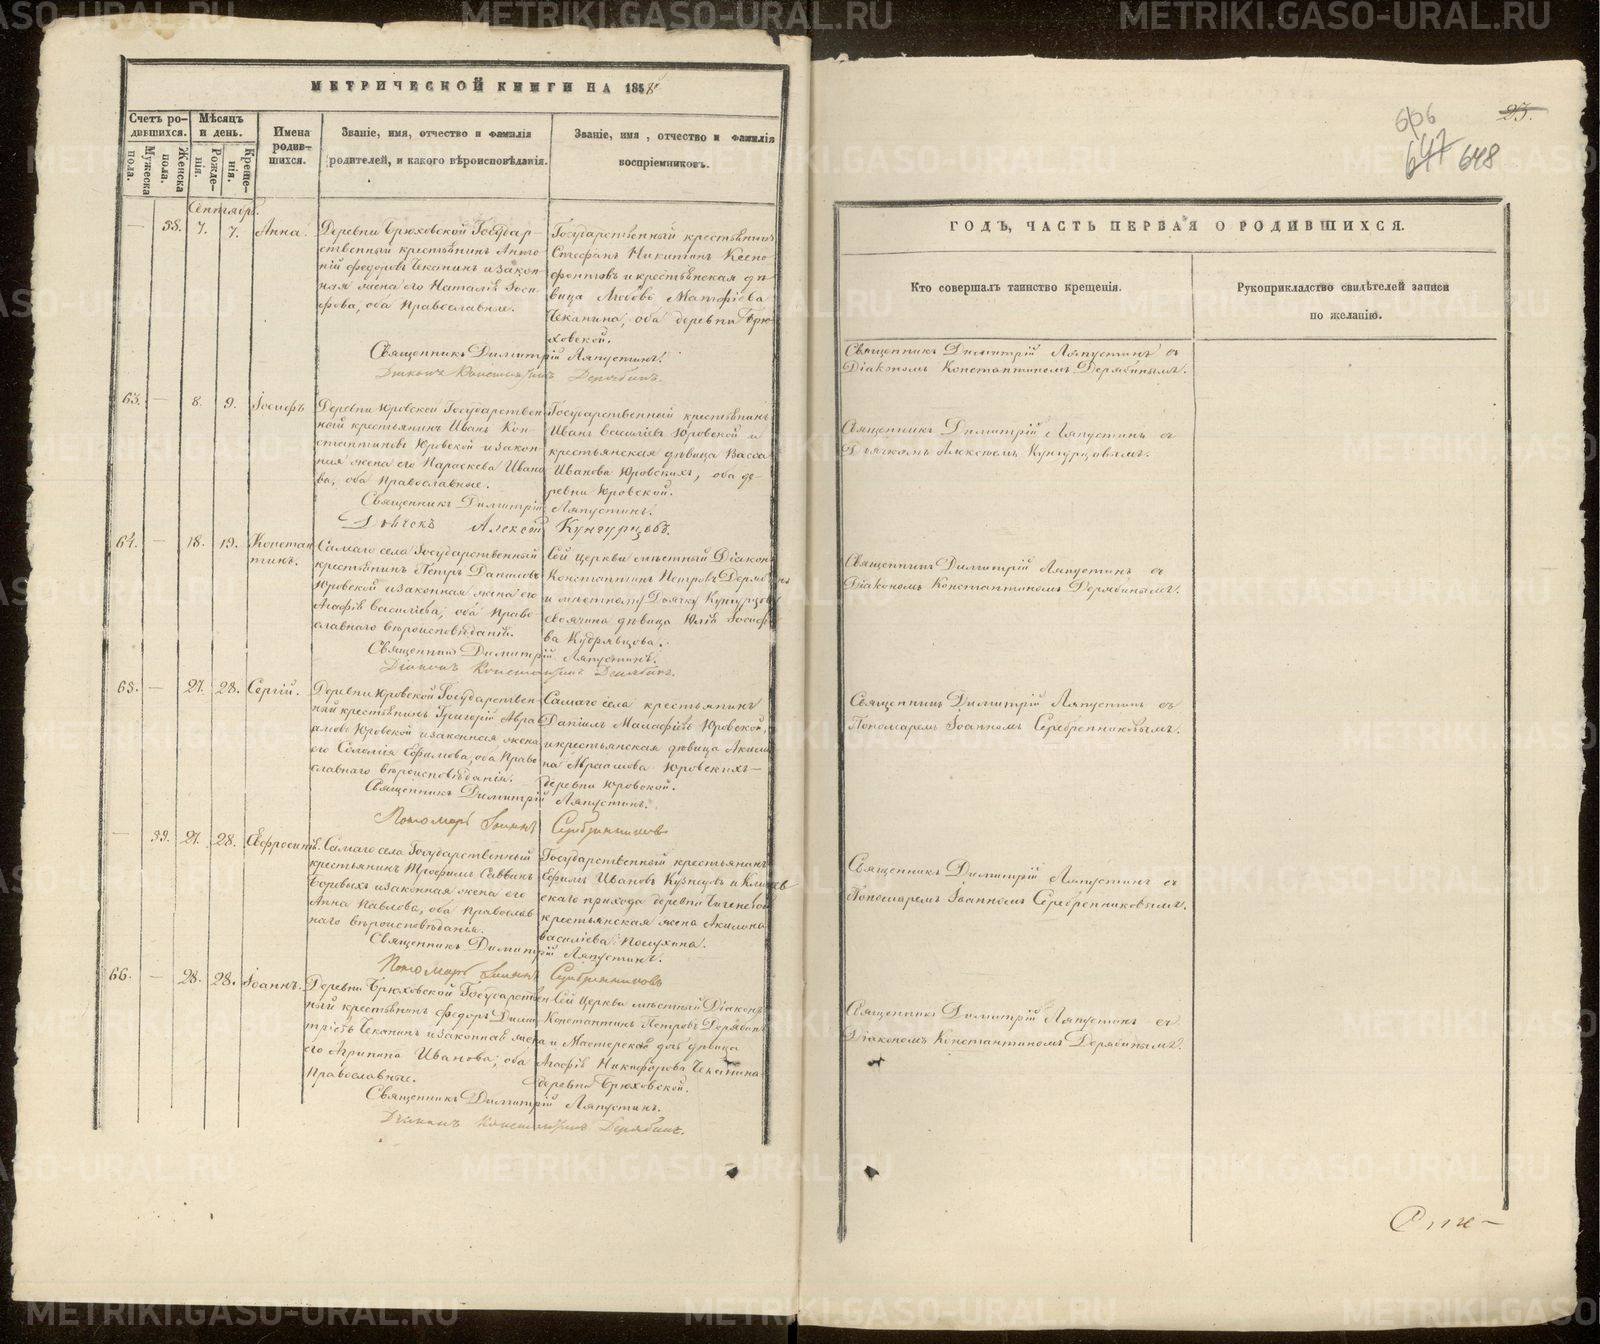 МЕТРИЧЕСКОЙ КНИГИ НА 1858
Счетъ ро-
дившихся.
Мѣсяцъ
и день.
Имена
родив-
шихся.
Званіе, имя, отчество и фамилія
родителей, и какого вѣроисповѣданія.
Званіе, имя, отчество и фамилія
воспріемниковъ.
Мужеска
пола.
Женска
пола.
Рожде-
нія.
Креще-
нія.
Сентябрь.
— 58. 7. 7. Анна.
Деревни Брюховской Государ-
ственный крестьянинъ Анто-
ній Федоровъ Чеканинъ и закон-
ная жена его Наталія Іоси-
фова, оба Православные.
Государственный крестьянинъ
Стефанъ Никитинъ Ксено-
фонтовъ и крестьянская дѣ-
вица Любовь Матфіева
Чеканина, оба деревни Брю-
ховской.
Священникъ Димитрій Ляпустинъ.
Діаконъ Константинъ Дерябинъ.
63. — 8. 9. Іосифъ
Деревни Юровской Государствен-
ный крестьянинъ Иванъ Кон-
стантиновъ Юровской и закон-
ная жена его Параскева Ивано-
ва, оба Православные.
Государственный крестьянинъ
Иванъ Василіевъ Юровской и
крестьянская дѣвица Васса
Иванова Юровскихъ, оба де-
ревни Юровской.
Священникъ Димитрій Ляпустинъ.
Дьячекъ Алексей Кунгурцовъ.
64. — 18. 19. Констан
тинъ.
Самаго села Государственный
крестьянинъ Петръ Даниловъ
Юровской и законная жена его
Агафія Василіева, оба Право-
славнаго вѣроисповѣданія.
Сей церкви мѣстный Діаконъ
Константинъ Петровъ Дерябинъ
и мѣстному Дьячку Кунгурцову
своячина дѣвица Юлія Іосифо-
ва Кудрявцова.
Священникъ Димитрій Ляпустинъ.
Діаконъ Константинъ Дерябинъ.
65. — 27. 28. Сергій.
Деревни Юровской Государствен-
ный крестьянинъ Григорій Авра-
амовъ Юровской и законная жена
его Соломія Ефимова, оба Право-
славнаго вѣроисповѣданія.
Самаго села крестьянинъ
Даніилъ Малафіевъ Юровской,
и крестьянская дѣвица Акили-
на Авраамова Юровскихъ —
деревни Юровской.
Священникъ Димитрій Ляпустинъ.
Пономарь Іоаннъ Серебренниковъ
— 59. 27. 28. Евфросинія.
Самаго села Государственный
крестьянинъ Трофимъ Саввинъ
Боровыхъ и законная жена его
Анна Павлова, оба Православ-
наго вѣроисповѣданья.
Государственный крестьянинъ
Ефимъ Ивановъ Кузнецовъ и
скаго прихода деревни
крестьянская жена Акилина
Василіева
Священникъ Димитрій Ляпустинъ.
Пономарь Іоаннъ Серебренниковъ
66. — 28. 28. Іоаннъ.
Деревни Брюховской Государствен-
ный крестьянинъ Федоръ Дими-
тріевъ Чеканинъ и законная жена
его Агрипина Иванова, оба
Православные.
Сей церкви мѣстный Діаконъ
Константинъ Петровъ Дерябинъ
и Мастерская дѣвица
Агафія Никифорова Чеканина
деревни Брюховской.
Священникъ Димитрій Ляпустинъ.
Діаконъ Константинъ Дерябинъ.
25.
606
647 648
ГОДЪ, ЧАСТЬ ПЕРВАЯ О РОДИВШИХСЯ.
Кто совершалъ таинство крещенія.
Рукоприкладство свидѣтелей записи
по желанію.
Священникъ Димитрій Ляпустинъ съ
Діакономъ Константиномъ Дерябинымъ.
Священникъ Димитрій Ляпустинъ съ
Дьячкомъ Алексѣемъ Кунгурцовымъ.
Священникъ Димитрій Ляпустинъ съ
Діакономъ Константиномъ Дерябинымъ.
Священникъ Димитрій Ляпустинъ съ
Пономаремъ Іоанномъ Серебренниковымъ.
Священникъ Димитрій Ляпустинъ съ
Пономаремъ Іоанномъ Серебренниковымъ.
Священникъ Димитрій Ляпустинъ съ
Діакономъ Константиномъ Дерябинымъ.
METRIKI.GASO-URAL.RU